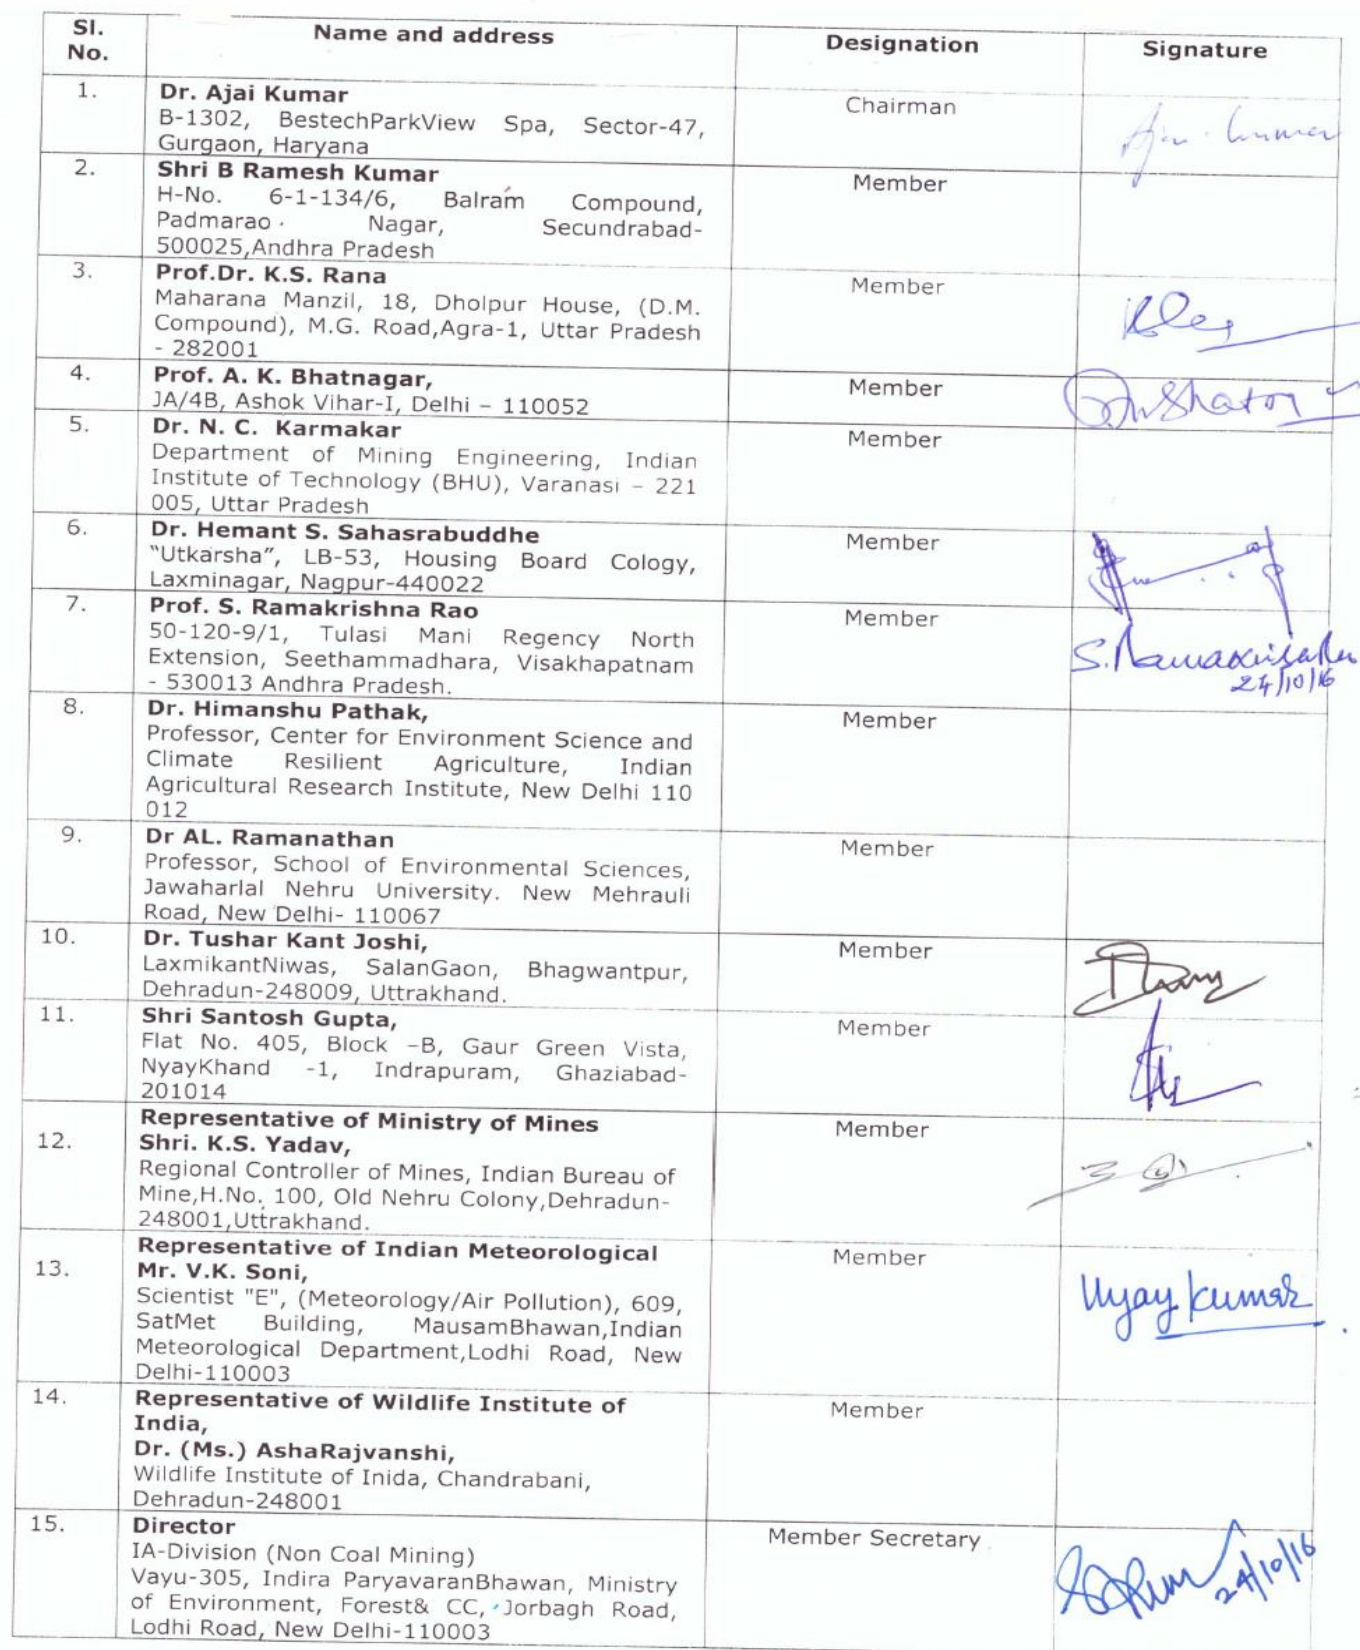 Sl. No. Name and address Designation Signature
1. Dr. Ajai Kumar Chairman
B-1302, BestechParkView Spa, Sector-47,
Gurgaon, Haryana
2. Shri B Ramesh Kumar Member
H-No. 6-1-134/6, Balram Compound,
Padmarao Nagar, Secundrabad-
500025,Andhra Pradesh
3. Prof.Dr. K.S. Rana Member
Maharana Manzil, 18, Dholpur House, (D.M.
Compound), M.G. Road,Agra-1, Uttar Pradesh
- 282001
4. Prof. A. K. Bhatnagar, Member
JA/4B, Ashok Vihar-I, Delhi – 110052
5. Dr. N. C. Karmakar Member
Department of Mining Engineering, Indian
Institute of Technology (BHU), Varanasi – 221
005, Uttar Pradesh
6. Dr. Hemant S. Sahasrabuddhe Member
"Utkarsha", LB-53, Housing Board Cology,
Laxminagar, Nagpur-440022
7. Prof. S. Ramakrishna Rao Member
50-120-9/1, Tulasi Mani Regency North
Extension, Seethammadhara, Visakhapatnam
- 530013 Andhra Pradesh.
24/10/16
8. Dr. Himanshu Pathak, Member
Professor, Center for Environment Science and
Climate Resilient Agriculture, Indian
Agricultural Research Institute, New Delhi 110
012
9. Dr AL. Ramanathan Member
Professor, School of Environmental Sciences,
Jawaharlal Nehru University. New Mehrauli
Road, New Delhi- 110067
10. Dr. Tushar Kant Joshi, Member
LaxmikantNiwas, SalanGaon, Bhagwantpur,
Dehradun-248009, Uttrakhand.
11. Shri Santosh Gupta, Member
Flat No. 405, Block –B, Gaur Green Vista,
NyayKhand -1, Indrapuram, Ghaziabad-
201014
Representative of Ministry of Mines Member
12. Shri. K.S. Yadav,
Regional Controller of Mines, Indian Bureau of
Mine,H.No. 100, Old Nehru Colony,Dehradun-
248001,Uttrakhand.
Representative of Indian Meteorological Member
13. Mr. V.K. Soni,
Scientist "E", (Meteorology/Air Pollution), 609,
SatMet Building, MausamBhawan,Indian
Meteorological Department,Lodhi Road, New
Delhi-110003
Vijay Kumar
14. Representative of Wildlife Institute of Member
India,
Dr. (Ms.) AshaRajvanshi,
Wildlife Institute of Inida, Chandrabani,
Dehradun-248001
15. Director Member Secretary
IA-Division (Non Coal Mining)
Vayu-305, Indira ParyavaranBhawan, Ministry
of Environment, Forest& CC, Jorbagh Road,
Lodhi Road, New Delhi-110003
24/10/16